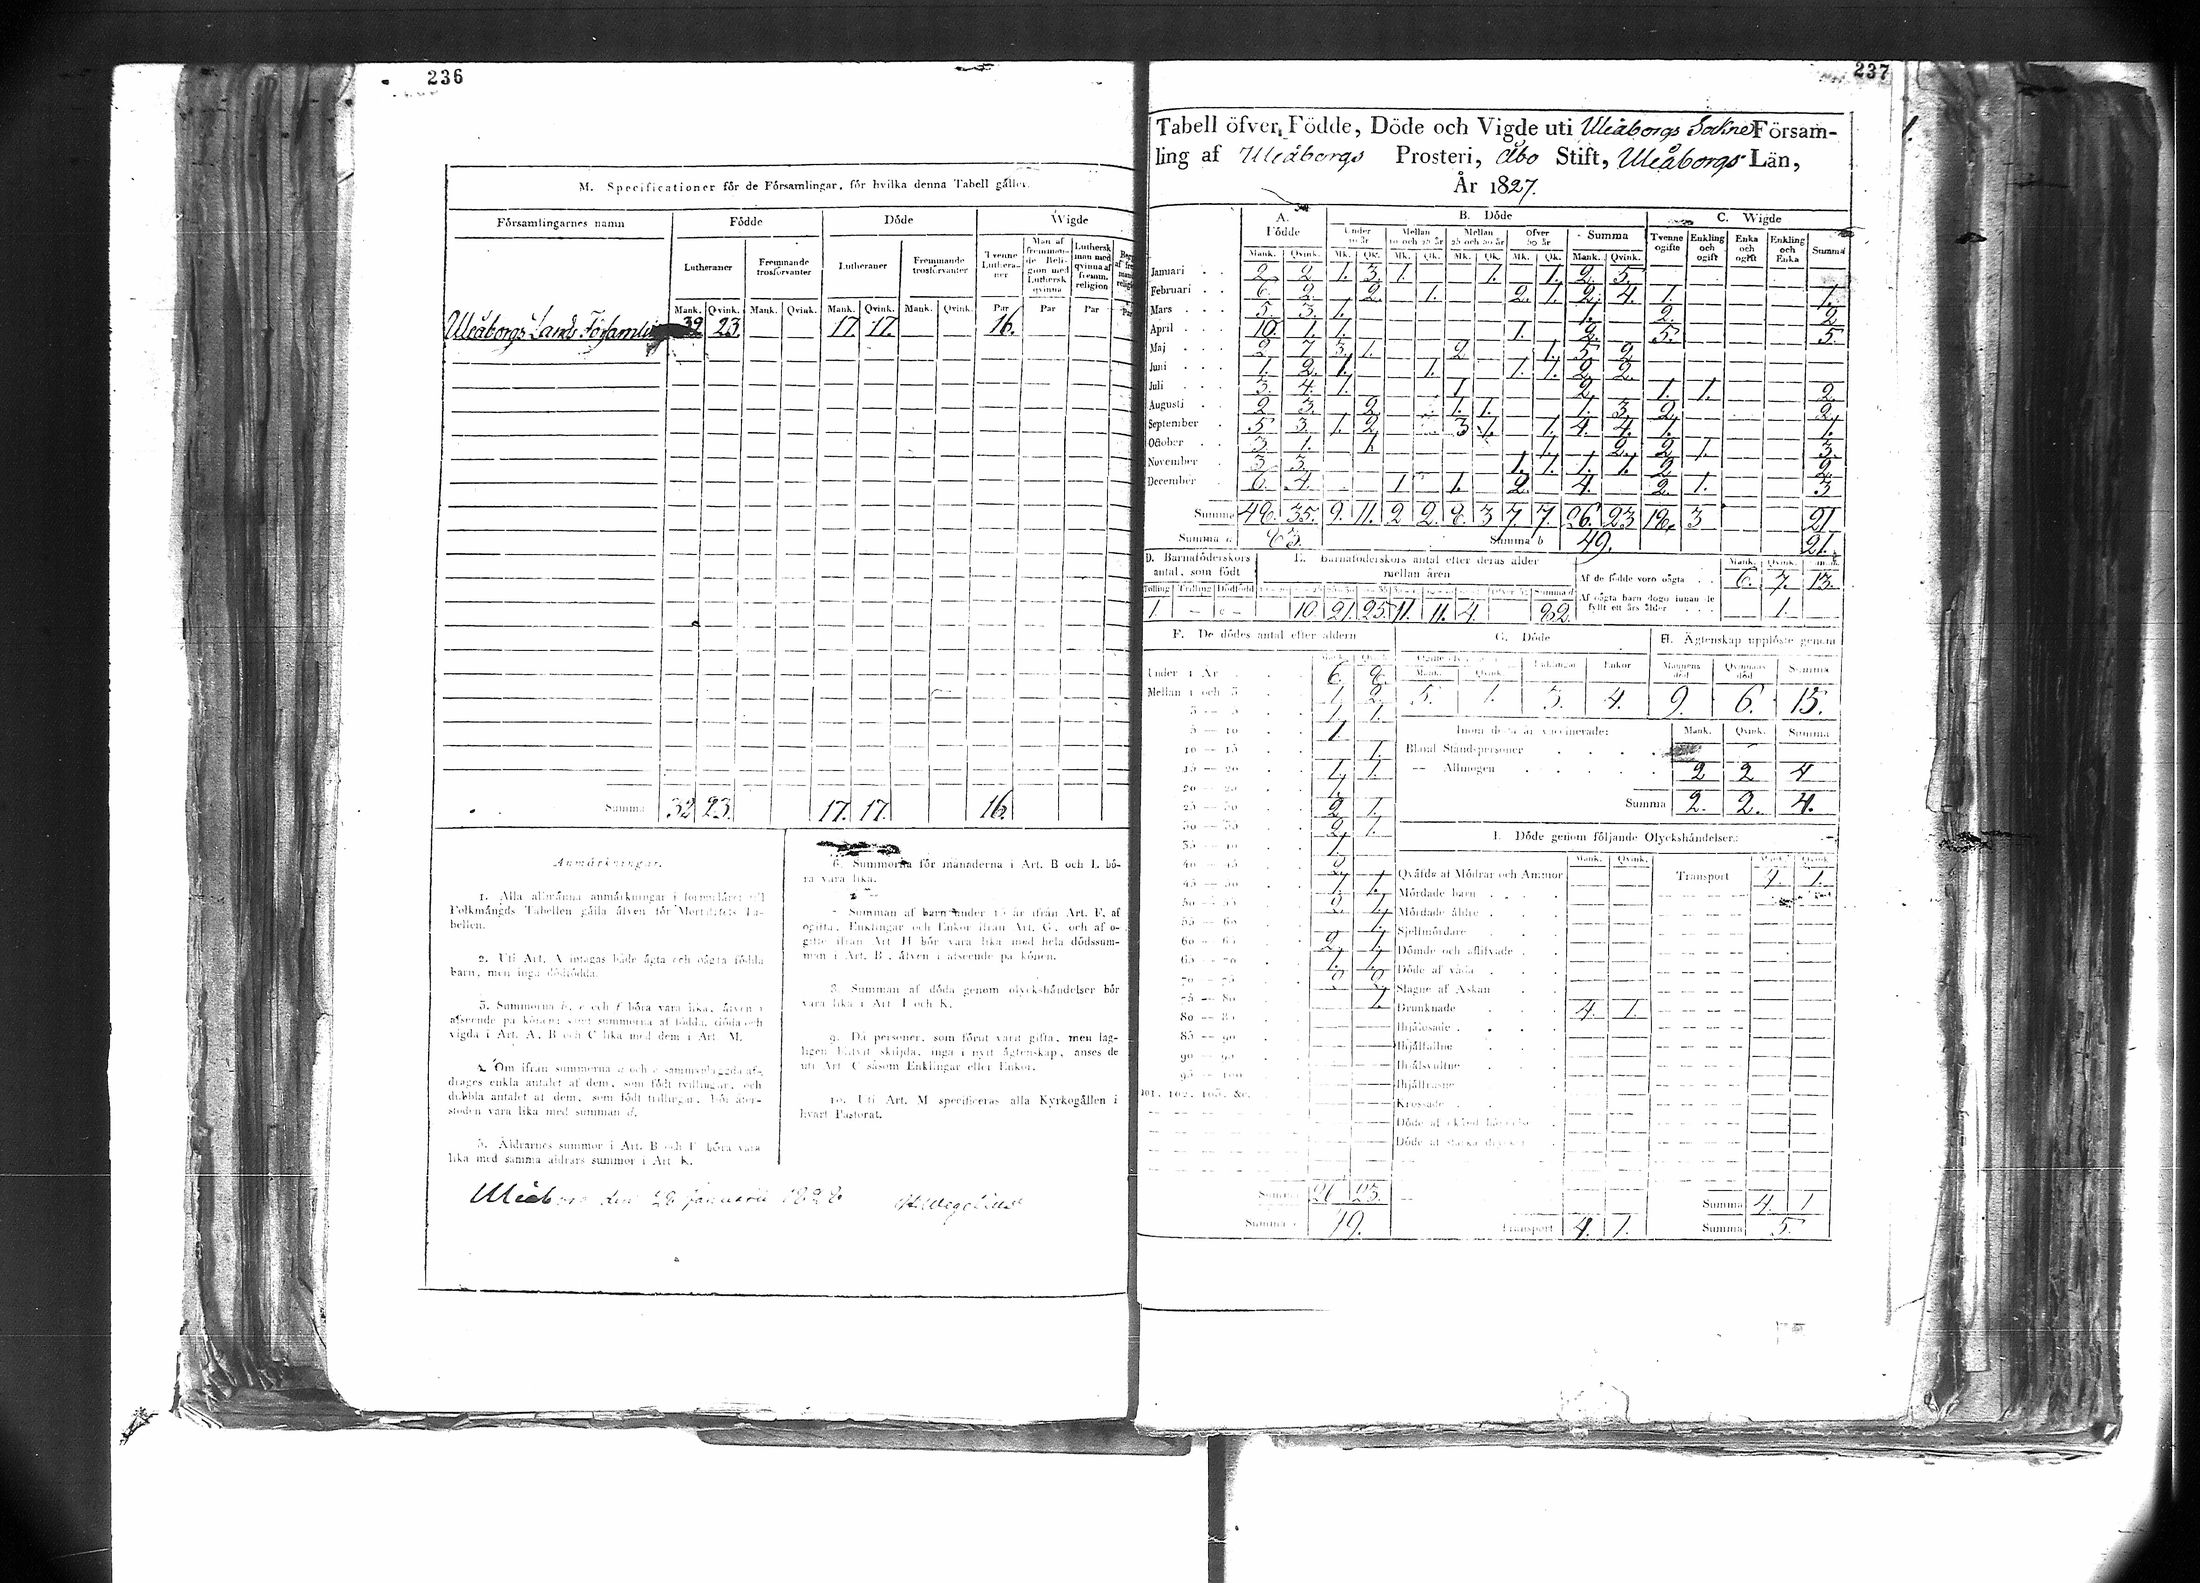 236
M. Specificationer för de Församlingar, för hvilka denna Tabell gäller.
Församlingarnes namn Födde Döde Wigde
Lutheraner Fremmande trosförvanter Lutheraner Fremmande trosförvanter Tvenne Lutheraner Man af fremmande Religion med Luthersk qvinna Luthersk man med qvinna af fremm. religion
Mank. Qvink. Mank. Qvink. Mank. Qvink. Mank. Qvink. Par Par Par
Uleåborgs Lands Församling 32 23. 17. 17. 16.
Summa 32 23. 17. 17. 16.
Anmärkningar.
1. Alla allmänna anmärkningar i formuläret till
Folkmängds Tabellen gälla äfven för Mortalitets Ta-
bellen.
2. Uti Art. A intagas både ägta och oägta födda
barn, men inga dödfödda.
3. Summorna b, e och f böra vara lika, äfven i
afseende på könen; samt summorna af födda, döda och
vigda i Art. A, B och C lika med dem i Art. M.
4. Om ifrån summorna a och c sammanlaggda af-
drages enkla antalet af dem, som födt tvillingar, och
dubbla antalet af dem, som födt trillingar, bör åter-
stoden vara lika med summan d.
5. Åldrarnes summor i Art. B och F böra vara
lika med samma åldrars summor i Art. K.
6. Summorna för månaderna i Art. B och L bö-
ra vara lika.
7. Summan af barn under 15 år ifrån Art. F, af
ogifta, Enklingar och Enkor ifrån Art. G, och af o-
gifte ifrån Art H bör vara lika med hela dödssum-
man i Art. B, äfven i afseende på könen.
8. Summan af döda genom olyckshändelser bör
vara lika i Art. I och K.
9. Då personer, som förut varit gifta, men lag-
ligen blifvit skiljda, ingå i nytt ägtenskap, anses de
uti Art. C såsom Enklingar eller Enkor.
10. Uti Art. M specificeras alla Kyrkogällen i
hvart Pastorat.
Uleåborg den 29 Januarii 1828
237
Tabell öfver Födde, Döde och Vigde uti Uleåborgs Sockne Försam-
ling af Uleåborgs Prosteri, Åbo Stift, Uleåborgs Län,
År 1827.
A. Födde B. Döde C. Wigde
Under 10 år Mellan 10 och 25 år Mellan 25 och 50 år Öfver 50 år Summa Tvenne ogifte Enkling och ogift Enka och ogift Enkling och Enka Summa
Mank. Qvink. Mk. Qk. Mk. Qk. Mk. Qk. Mk. Qk. Mank. Qvink.
Januari 2. 2. 1. 3. 1. 1. 1. 2. 5.
Februari 6. 2. 2. 1. 2. 1. 2. 4. 1. 1.
Mars 5. 3. 1. 1. 2. 2
April 10. 1. 1. 1. 2. 5. 5.
Maj 2. 7. 3. 1. 2 1. 5. 2.
Juni 1. 2. 1. 1. 1. 1. 2. 2.
Juli 3. 4. 1. 1. 2. 1. 1. 2.
Augusti 2. 3. 2. 1. 1. 1. 3. 2. 2.
September 5 3. 1. 2. 3 1. 1. 4. 4. 1. 1.
October 3. 1. 1. 1. 2. 2 1. 3.
November 3. 3. 1. 1. 1. 1. 2 2.
December 6. 4. 1 1. 2. 4. 2. 1. 3
Summa 48. 35. 9. 11. 2 2. 8. 3 7. 7. 26. 23 18. 3 21.
Summa a 83. Summa b 49. 21.
D. Barnaföderskors antal, som födt E. Barnaföderskors antal efter deras ålder mellan åren
Mank. Qvink.
Af de födde voro oägta 6. 7. 13.
Af oägta barn dogo innan de fyllt ett års ålder 1.
Tvilling Trilling Dödfödd Summa d
1. 10. 21. 25. 11. 11. 4. 82.
F. De dödes antal efter åldern G. Döde H. Ägtenskap upplöste genom
Enkor Mannens död Qvinnans död Summa
Mank. Qvink.
5. 1. 3. 4. 9. 6. 15.
Under 1 År 6. 8.
Mellan 1 och 3 1. 2.
3 — 5 1. 1.
5 — 10 1.
10 — 15 1.
15 — 20 1. 1.
20 — 25 1.
25 — 30 2. 1.
30 — 35 2. 1.
35 — 40 1.
40 — 45
45 — 50
50 — 55
55 — 60
60 — 65
65 — 70
70 — 75
75 — 80
80 — 85
85 — 90
90 — 95
95 — 100
101. 102. 103. &c.
Summa 26 23.
Summa 49.
Inom detta år vaccinerade: Mank. Qvink. Summa
Bland Ståndspersoner
— Allmogen 2 2 4
Summa 2. 2. 4.
I. Döde genom följande Olyckshändelser:
Mank. Qvink.
Qväfde af Mödrar och Ammor Transport 4. 1.
Mördade barn
Mördade äldre
Sjelfmördare
Dömde och aflifvade
Döde af våda
Slagne af Åskan
Drunknade 4. 1.
Ihjälfallne
Ihjälsvultne
Ihjälfrusne
Krossade
Summa 4. 1
Transport 4. 1. Summa 5.